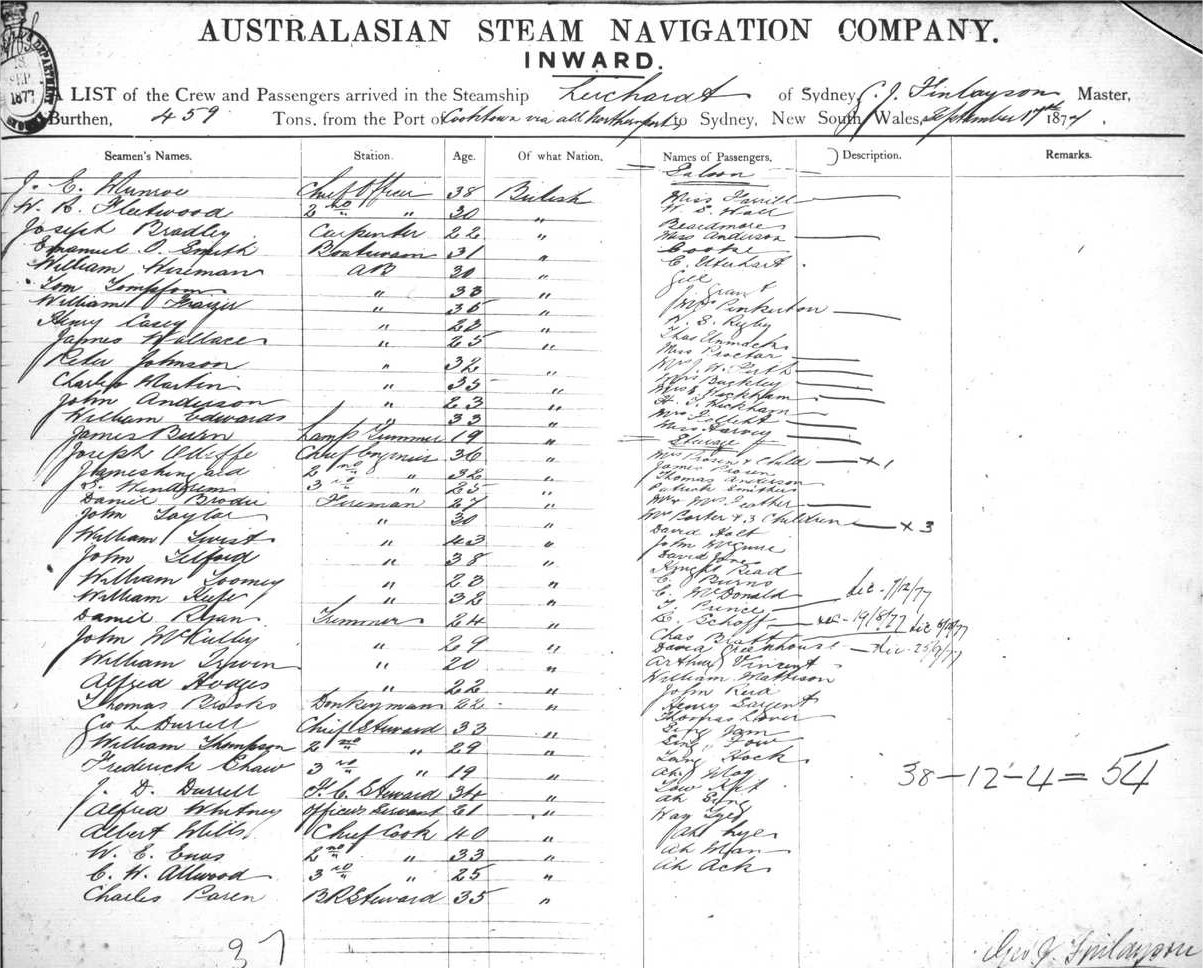 18
SEP
1877
AUSTRALASIAN STEAM NAVIGATION COMPANY.
INWARD.
A LIST of the Crew and Passengers arrived in the Steamship Leichardt of Sydney, G. J. Finlayson Master,
Burthen, 459 Tons. from the Port of Cooktown via all Northern ports to Sydney, New South Wales, September 17th 1877.
Seamen's Names. Station. Age. Of what Nation, Names of Passengers, Description. Remarks.
Saloon
J. E. Munroe Chief Officer 38 British Miss
W. R. Fleetwood 2nd " 30 " W. E. Wall
Joseph Bradley Carpenter 22 " Beardmore
Miss Anderson
Emanuel O. Smith Boatswain 31 " Cooke
William Wiseman AB 30 " C. Uterhart
Tom Tompson " 33 " Gill
J. Grant
William Frazer " 35 " Mrs Pinkerton
Henry Casey " 22 " W. E. Ryby
James Wallace " 25 " Thos Unmack
Miss Proctor
Peter Johnson " 32 " Mrs J. W. Perth
Charles Martin " 35 " Buckley
Wickham
John Anderson " 23 " H. T. Wickham
William Edwards " 33 " Mrs
Miss Harvey
James Burn Lamp Trimmer 19 " Steerage
Joseph Chief Engineer 36 " Mrs Brown & Child x 1
James Kincaid 2nd " 32 " James Brown
Thomas Anderson
J. Windrum 3rd " 25 " Patrick Smithers
Daniel Brodie Fireman 27 " Mr & Mrs Leather
John Taylor " 30 " Mrs Porter & 3 Children x 3
David Holt
William Twist " 43 " John McGuire
John Tilford " 38 " David Jones
Knight Read
William Toomey " 23 " C. Burns
William Keefe " 32 " C. McDonald dec. 7/12/77
T. Prince
Daniel Ryan Trimmer 24 " L. Schoff dec. 19/8/77
John McKulley " 29 " Chas Bratt
David Greenhouse dec. 25/9/77
William Irwin " 20 " Arthur Vincent
William Mattison
Alfred Hodges " 22 " John Reid
Thomas Brooks Donkeyman 22 " Henry Sargent
Geo L. Durrell Chief Steward 33 " Thomas Lover
Sing Jam
William Thompson 2nd " 29 " Sing Tow
Frederick Chaw 3rd " 19 " Lang Hock
Ah Mog
J. D. Durrell F. C. Steward 34 " Tow Kpt
38 – 12 – 4 = 54
Alfred Whitney Officers Servant 21 " Ah Sing
Way Lyed
Albert Wills Chief Cook 40 " Ah Lyes
W. E. Enos 2nd " 33 " Ah Man
C. W. Allwood 3rd " 25 " Ah Ack
Charles Paren BR Steward 35 "
37
Geo J. Finlayson